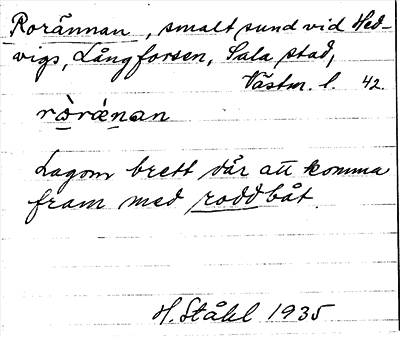 Rorännan, smalt sund vid Hed-
vigs, Långforsen, Sala stad,
Västm. l. 42.
ròrǽnan
Lagom brett där att komma
fram med roddbåt.
H. Ståhl 1935